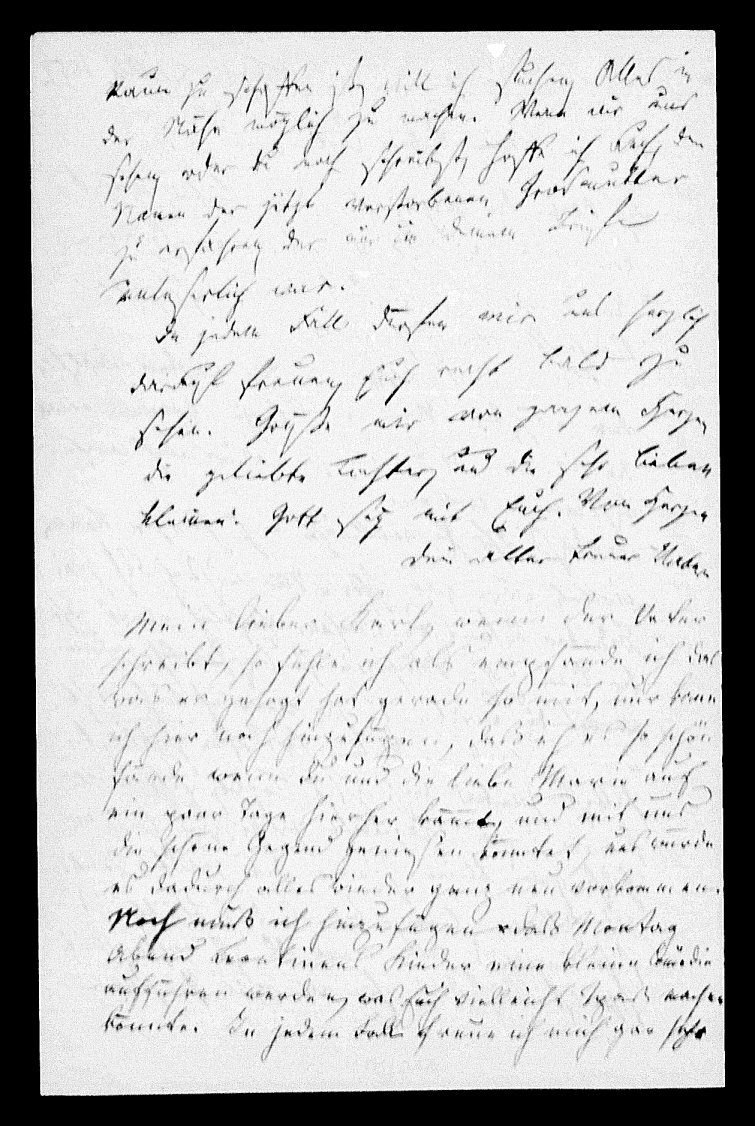 Raum zu schaffen ist, will ich suchen Alles in
der Nähe möglich zu machen. Wenn wir uns
sehen oder du noch schreibst, hoffe ich auch den
Namen der jetzt verstorbenen Grosmutter
zu erfahren der mir in deinem Briefe
unleserlich war.
In jedem Fall dürfen wir uns herzlich
darauf freuen, Euch recht bald zu
sehen. Grüße mir von ganzem Herzen
die geliebte Tochter, und die sehr lieben
kleinen. Gott sey mit Euch. Von Herzen
dein alter treuer Vater
Mein lieber Karl, wenn der Vater
schreibt, so fühle ich als empfände ich das
was er gesagt hat gerade so mit, nur kann
ich hier noch hinzufügen, daß ich es so schön
fände wenn Du und die liebe Marie auf
ein paar Tage hierher kämet, und mit uns
die schöne Gegend genießen könntet, uns würde
es dadurch alles wieder ganz neu vorkommen.
Noch muß ich hinzufügen daß Montag
Abend Kinder eine kleine Comödie
aufführen werden, was Euch vielleicht Spaß machen
könnte. In jedem Falle freue ich mich gar sehr